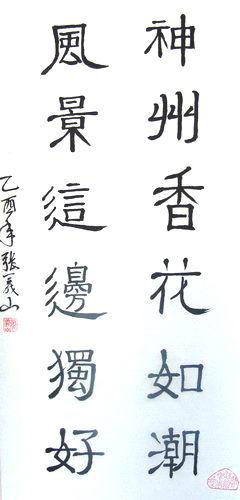 神州香花如潮
風景這邊獨好
乙酉年張義山